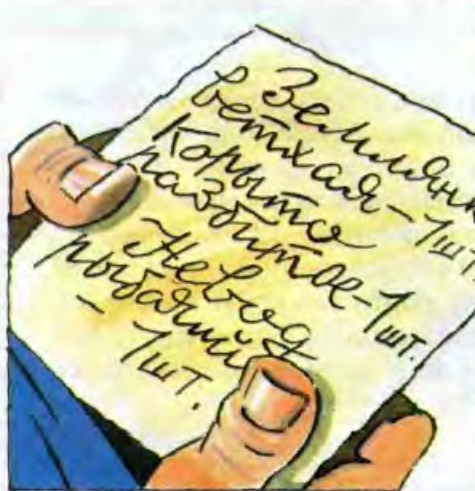 Землянка
ветхая-1шт.
Корыто
разбитое-1шт.
Невод
рыбачий
- 1шт.